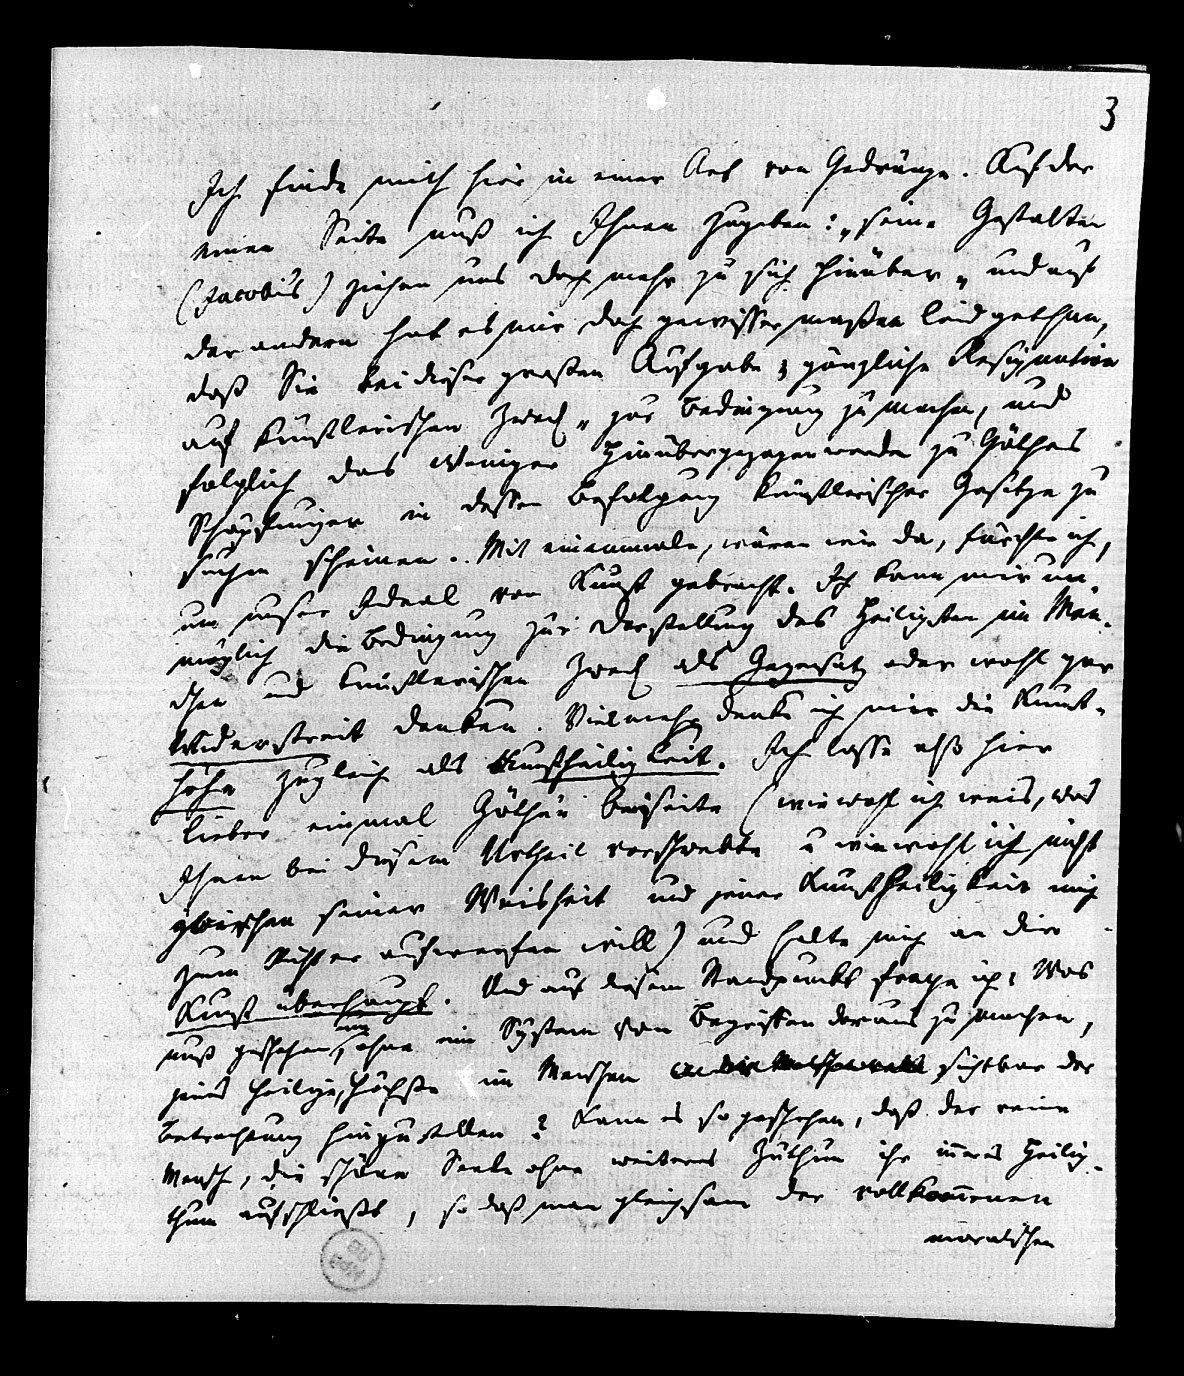 3
Ich finde mich hier in einer Art von Gedränge. Auf der
einen Seite muß ich Ihnen zugeben: „seine Gestalten
(Jacobi's) ziehen uns doch mehr zu sich hinüber„ und auf
der andern hat es mir doch gewissermaßen leid gethan,
daß Sie bei dieser großen Aufgabe „gänzliche Resignation
auf künstlerischen Zweck„ zur Bedingung zu machen, und
folglich das weniger Hinübergezogenwerden zu Göthes
Schöpfungen in dessen Befolgung künstlerischer Gesetze zu
suchen scheinen. Mit einemmale, wären wir da, fürchte ich,
um unser Ideal von Kunst gebracht. Ich kann mir un-
möglich die Bedingung zur Darstellung des Heiligsten im Men-
schen und künstlerischen Zweck als Gegensatz oder wohl gar
Widerstreit denken. Vielmehr denke ich mir die Kunst-
höhe zugleich als Kunstheiligkeit. Ich lasse also hier
lieber einmal Göthen beiseite (wiewohl ich weis, was
Ihnen bei diesem Urtheil vorschwebte u wiewohl ich nicht
zwischen seiner Weisheit und jener Kunstheiligkeit mich
zum Richter aufwerfen will) und halte mich an die
Kunst überhaupt. Und aus diesem Standpunkt frage ich: Was
muß geschehen, um, ohne ein System von Begriffen daraus zu machen,
jenes Heilige, Höchste im Menschen sichtbar der
Betrachtung hinzustellen? Kann es so geschehen, daß der reine
Mensch, die schöne Seele ohne weiteres Zuthun ihr inneres Heilig-
thum aufschließt, so daß man gleichsam der vollkommenen
moralischen